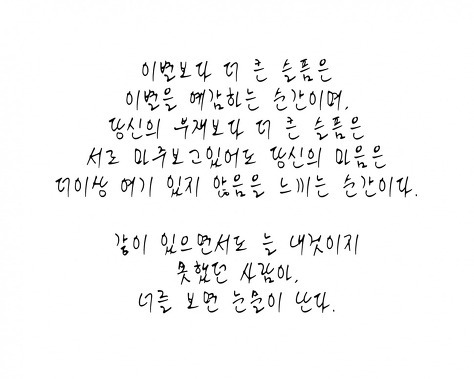 이별보다 더 큰 슬픔은
이별을 예감하는 순간이며,
당신의 부재보다 더 큰 슬픔은
서로 마주보고있어도 당신의 마음은
더이상 여기 있지 않음을 느끼는 순간이다.
같이 있으면서도 늘 내것이지
못했던 사람아,
너를 보면 눈물이 난다.